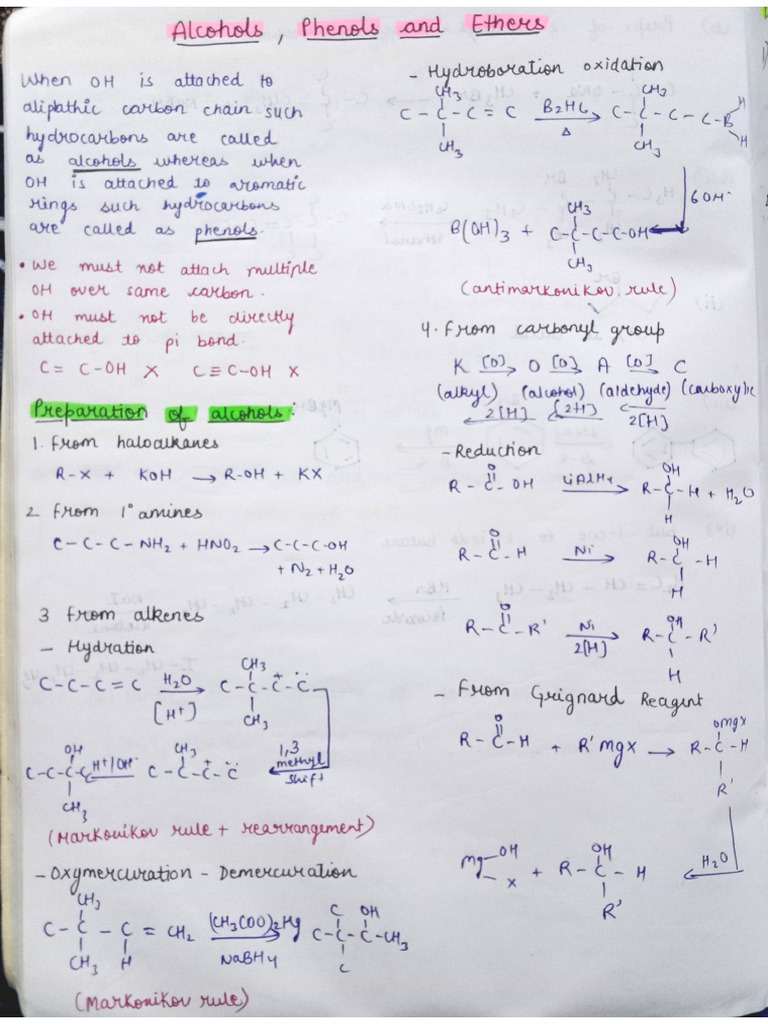 Alcohols, Phenols and Ethers
When OH is attached to
alipathic carbon chain such
hydrocarbons are called
as alcohols whereas when
OH is attached to aromatic
rings such hydrocarbons
are called as phenols.
• We must not attach multiple
OH over same carbon.
• OH must not be directly
attached to pi bond.
C = C-OH X C≡C-OH X
Preparation of alcohols:
1. From haloalkanes
R-X + KOH → R-OH + KX
2 From 1° amines
C-C-C-NH2 + HNO2 → C-C-C-OH
+ N2 + H2O
3 From alkenes
- Hydration
CH3
C-C-C=C H2O → C-C-C-C
[H+]
CH3
1,3
methyl
shift
OH CH3
C-C-C-C H+/OH- C-C-C-C
CH3
(Markonikov rule + rearrangement)
- Oxymercuration - Demercuration
CH3
C-C-C=CH2 (CH3COO)2Hg C-C-C-CH3
C OH
CH3 H NaBH4 C
(Markonikov rule)
- Hydroboration oxidation
CH3 CH3 H
C-C-C=C B2H6 → C-C-C-C-B
CH3 Δ CH3 H
6OH-
CH3
B(OH)3 + C-C-C-C-OH
CH3
(antimarkonikov rule)
4. From carbonyl group
K [O] → O [O] → A [O] → C
(alkyl) (alcohol) (aldehyde) (carboxylic
2[H] [2H] 2[H]
- Reduction
O OH
R-C-OH LiAlH4 → R-C-H + H2O
H
O OH
R-C-H Ni → R-C-H
H
O OH
R-C-R' Ni → R-C-R'
2[H] H
- From Grignard Reagent
O omgx
R-C-H + R'mgx → R-C-H
R'
H2O
OH OH
mg + R-C-H
x R'